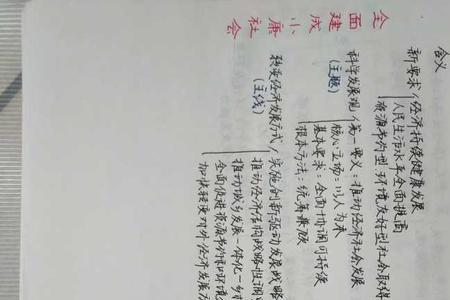 全面建成小康社会
含义
新要求
经济持续健康发展
人民生活水平全面提高
资源节约型 环境友好型社会取得
科学发展观
(主题)
第一要义:推动经济社会发展
核心立场:以人为本
基本要求:全面协调可持续
根本方法:统筹兼顾
转变经济发展方式
(主线)
实施创新驱动发展战略
推动经济结构战略性调
推动城乡发展一体化
全面促进资源节约和环境
加快转变对外经济发展方